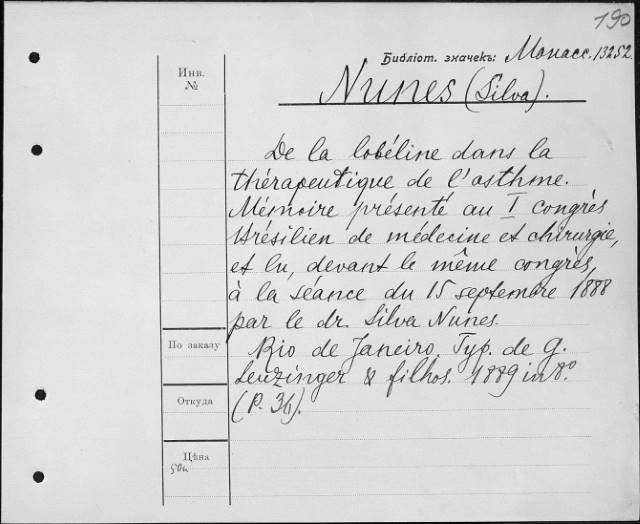 190
Библіот. значекъ: Монасс. 13252.
Инв.
№
Nunes (Silva).
De la lobéline dans la
thérapeutique de l'asthme.
Mémoire présenté au I congrès
Brésilien de médecine et chirurgie,
et lu, devant le même congrès,
à la séance du 15 septembre 1888
par le dr. Silva Nunes.
По заказу
Rio de Janeiro. Typ. de G.
Leuzinger & filhos. 1889 in 8º
Откуда
(P. 36).
Цѣна
50к